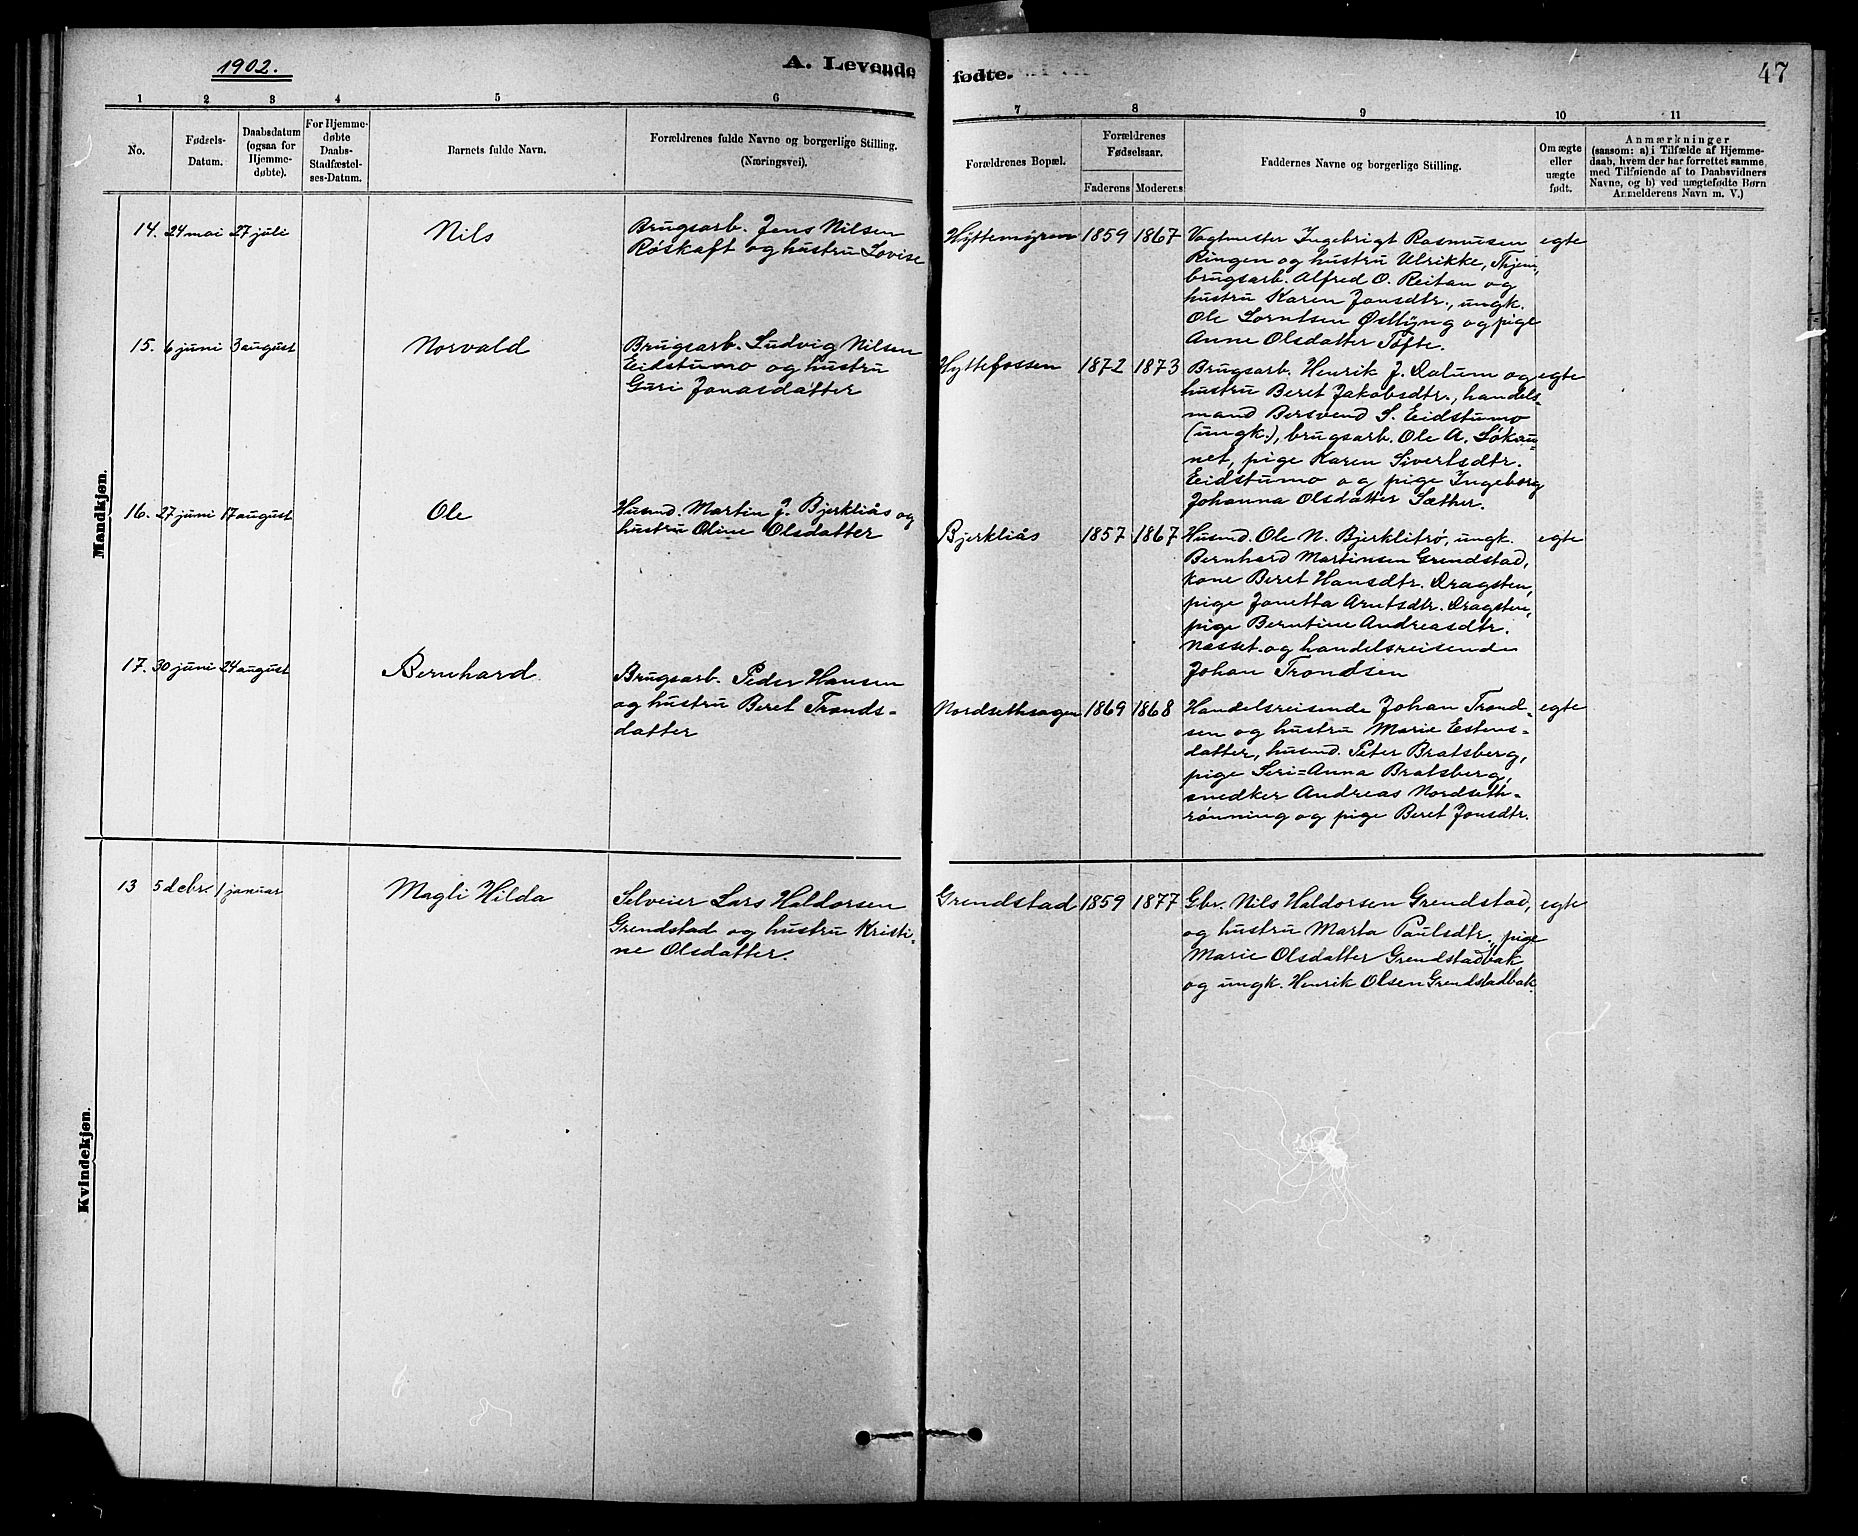 1902.
A. Levende fødte.
47
1 2 3 4 5 6 7 8 9 10 11
No.
Fødsels-
Datum.
Daabsdatum
(ogsaa for
Hjemme-
døbte).
For Hjemme-
døbte
Daabs-
Stadfæstel-
ses-Datum.
Barnets fulde Navn.
Forældrenes fulde Navne og borgerlige Stilling.
(Næringsvei).
Forældrenes Bopæl.
Forældrenes
Fødselsaar.
Faderens Moderens
Faddernes Navne og borgerlige Stilling.
Om ægte
eller
uægte
født.
Anmærkninger
(saasom: a) i Tilfælde af Hjemme-
daab, hvem der har forrettet samme
med Tilføiende af to Daabsvidners
Navne, og b) ved uægtefødte Børn
Anmelderens Navn m. V.)
Mandkjøn.
14. 24 mai 27 juli
Nils
Brugsarb. Jens Nilsen
Røskaft og hustru Lovise
Hyttemyren 1859 1867
Vagtmester Ingebrigt Rasmusen
Ringen og hustru Ulrikke,
brugsarb. Alfred O. Reitan og
hustru Karen Jonsdtr., ungk.
Ole Lorntsen Østlyng og pige
Anne Olsdatter Tofte.
egte
15. 6 juni 3 august
Norvald
Brugsarb. Ludvig Nilsen
Eidstumo og hustru
Guri Jonasdatter
Hyttefossen 1872 1873
Brugsarb. Henrik J. Dalum og
hustru Beret Jakobsdtr., handels-
mand Bersvend S. Eidstumo
(ungk.), brugsarb. Ole A. Løkau-
net, pige Karen Sivertsdtr.
Eidstumo og pige Ingeborg
Johanna Olsdatter Sæther.
egte
16. 27 juni 17 august
Ole
Husmd. Martin J. Bjerkliås og
hustru Oline Olsdatter
Bjerkliås 1857 1867
Husmd. Ole N. Bjerklitrø, ungk.
Bernhard Martinsen Grendstad,
kone Beret Hansdtr. Dragsten,
pige Jonetta Arntsdtr. Dragsten,
pige Berntine Andreasdtr.
Nesset og handelsreisende
Johan Trondsen
egte
17. 30 juni 24 august
Bernhard
Brugsarb. Peder Hansen
og hustru Beret Tronds-
datter
Nordsethsagen 1869 1868
Handelsreisende Johan Trond-
sen og hustru Marie Estens-
datter, husmd. Peter Bratsberg,
pige Seri=Anna Bratsberg,
snedker Andreas Nordseth-
rønning og pige Beret Jonsdtr.
egte
Kvindekjøn.
13 5 debr. 1 januar
Magli Hilda
Selveier Lars Haldorsen
Grendstad og hustru Kristi-
ne Olsdatter.
Grendstad 1859 1877
Gbr. Nils Haldorsen Grendstad,
og hustru Marta Paulsdtr., pige
Marie Olsdatter Grendstadbak
og ungk. Henrik Olsen Grendstadbak.
egte